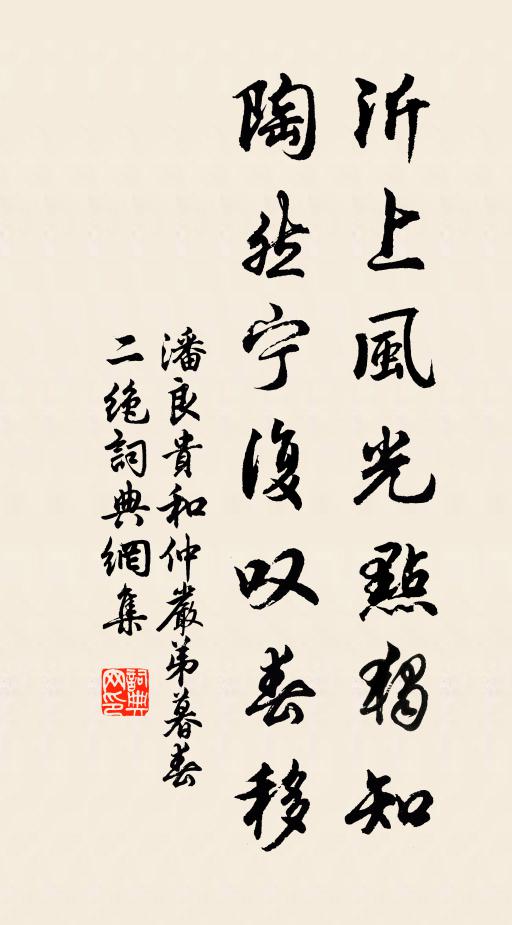 沂上風光點獨知
陶然宁復叹春移
潘良貴和仲嚴弟暮春
二絶詞典網集
詞典网印